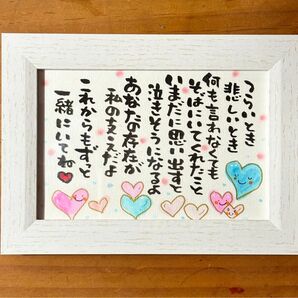 つらいとき
悲しいとき
何も言わなくても
そばにいてくれたこと
いまだに思い出すと
泣きそうになるよ
あなたの存在が
私の支えだよ
これからもずっと
一緒にいてね